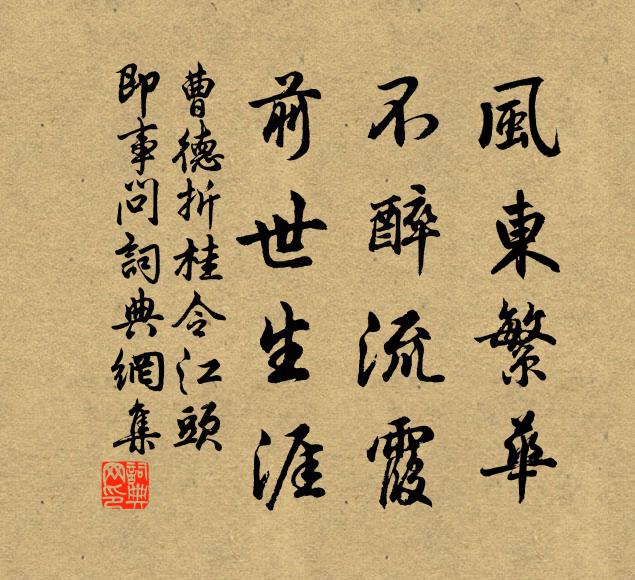 風東繁華
不醉流霞
前世生涯
曹德折桂令江頭
即事問詞典網集
詞典网印